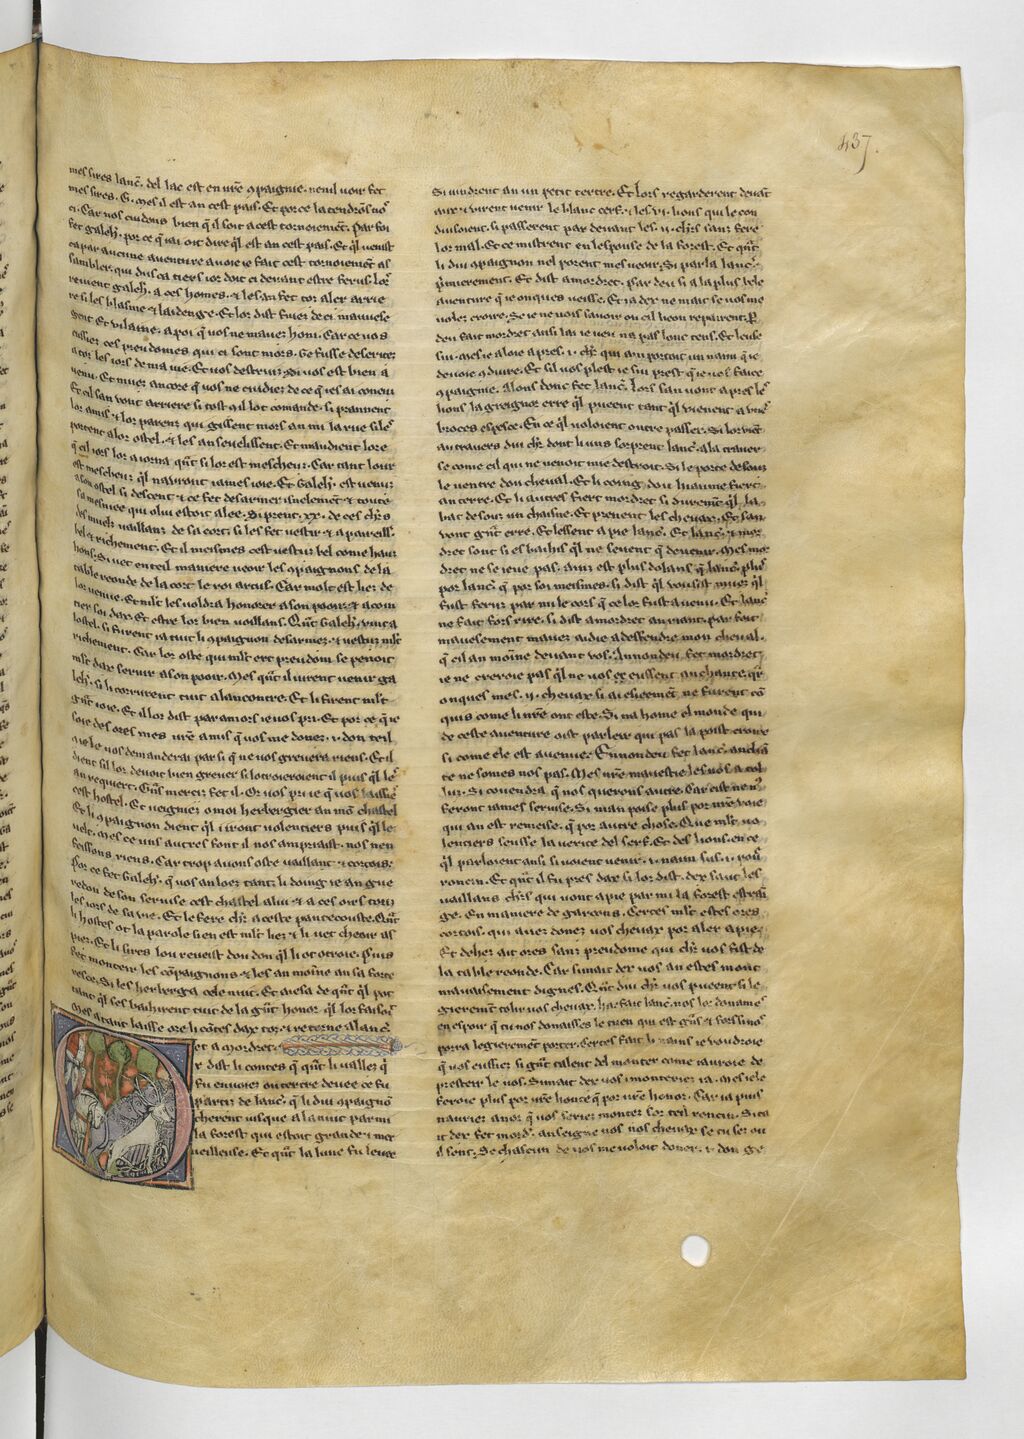 437.
mes sires lanc̃. del lac est en vr̃e ꝯpaignie. nenil voir fet
mes sires. G. mes il est an cest pais. Et por ce latendrõs
ci. Car nos cuidons bien q̃ il soit a cest tornoiemẽt. Par foi
fet galeh̃. por ce q̃ iai oit dire q̃l est an cest pais. Et q̃l venist
ca par aucune aventure avoie ie fait cest tornoiemẽt as
sambler. qui dusca tiers ior doit ci devant estre ferus. lors
revient galeh̃. a ces homes. et les an fet toz aler arrie
re si les blasme et laidenge. Et lor dist fuiez de ci mauvese
gent Et vilaine. a poi q̃ vos ne mavez honi. Car ce vos
eussiez ces preudomes qui ci sont mors. Ge fusse deseritez
a toz les iors de ma vie. Et vos destruiz. Si vos est bien a
venu. Et miuez ancore q̃ vos ne cuidiez de ce q̃ ie ai concu
Et cil san vont arriere si tost cõ il lot comande. si prannent
lor amis et lor parenz qui gissent mors an mi la rue si les
portent a lor ostel. et les ansevelissent. Et maudient lore
q̃ cil iors lor aiorna. q̃nt si lor est mescheu. Car tant lour
est mescheu q̃l nauront iames ioie. Et Galeh̃. est venuz
a son ostel si descent et ce fet desarmer isnelemẽt et toute
sa mesniee qui o lui estoit alee. Si prent. xx. de ces ch̃rs
des miulz vaillanz de sa cort. si les fet vestir et apareill̃.
bel et richement. Et il meismes cest vestuz bel come haut
hons. Si vet en teil maniere veoir les ꝯpaignons de la
table reonde de la cort le roi artus. Car molt est liez de
lor venue. Et ml̃t les voldra honorer a son pooir. et acoin
tier soi dax. Et estre lor bien voillans. Quãt Galeh̃. vint a
lostel. si furent ia tuit li ꝯpaignon desarmez. et vestuz ml̃t
richement. Car lor oste qui ml̃t ert preudom se penoit
ml̃t dax servir a son pooir. Mes quãt il virent venir ga
leh̃. si li corrurent tuit a lancontre. Et li firent ml̃t
grãt ioie. Et il lor dist par amors ie vos pri. Et por ce q̃ ie
soie des ores mes vr̃e amis q̃ vos me donez. i. don teil
q̃ ie le vos demanderai par si q̃ ne vos grevera riens. Et il
dient sil lor devoit bien grever si lotroieroient il puis q̃l le
an requiert. Grãs merciz fet il. Or vos pri ie q̃ vos laissiez
cest hostel. Et veigniez o moi herbergier an mõ chastel
Et li ꝯpaignon dient q̃l i iront volentiers puis q̃l le
velt. Mes ce uns autres font il nos ampriast. nos nen
feissons riens. Car trop avons oste vaillant et cortois.
Por ce fet Galeh̃. q̃ vos an loez tant. li doing ie an gue
redon de son servise cest chastel a lui et a ces oirs toz
les iors de sa vie. Et le fere ch̃r a ceste pantecouste. Quãt
li hostes ot la parole si en est ml̃t liez et li vet cheoir as
piez. Et li sires lou reveist dou don q̃l li ot otroie. Puis
fet monter les cõpaignons et les an moine an sa forte
resce. Si les herberga cele nuit. Et aiesa de quãt q̃l pot
tant q̃l ses baihirent tuit de la grãt honor q̃l lor faisoit
Mes atant laisse ore li cõtes dax toz. et retorne a lanc̃.
et a mordret.
Or dist li contes q̃ quãt li vallez q̃
fu envoiez ou tertre devee ce fu
partiz de lanc̃. q̃ li dui ꝯpaignõ
cherent iusque a la nuit parmi
la forest qui estoit grande et mer
veilleuse. Et quãt la lune fu levee
si vindrent an un petit tertre. Et lors regarderent devãt
aux et virent venir le blanc cerf. et les vi. lions qui le con
duisoient. si passerent par devant les. ii. ch̃rs sanz fere
lor mal. Et ce mistrent en lespoisse de la forest. Et quãt
li dui ꝯpaignon nel porent mes veoir. Si parla lanc̃.
p̃mierement. Et dist a mordret. par deu si a la plus bele
aventure q̃ ie onques veisse. Et ia dex ne mait se vos me
volez croire. Se ie ne vois savoir ou cil lieon reparent. Par
deu fait mordret ausi lai ie veu na pas lonc tens. Et leusse
sui. mes ie aloie apres. i. ch̃r qui an portoit un nain q̃ ie
devoie ꝯduire. Et sil vos plest ie sui prest q̃ ie vos face
ꝯpaignie. Alons donc fet lanc̃. Lors san vont apres les
lions la greignor erre q̃l pueent tant q̃l vienent a unes
broces espesce. En ce q̃l voloient outre passer. Si lor viẽt
au travers dui ch̃r dont li uns sorprent lanc̃. a la traver
se come cil qui ne venoit mie destroit. Si le porte desouz
le ventre dou cheval. Et li coing dou hiaume fiert
an terre. Et li autres fiert mordret si duremẽt q̃l la
bat desouz un chaisne. Et prenent les chevax. Et san
vont grãt erre. Et lessent a pie lanc̃. Et lanc̃. et mor
dret sont si esbaihis q̃l ne sevent q̃ devenir. Mes mor
dret ne se ieue pas. ainz est plus dolans q̃ lanc̃. plus
por lanc̃. q̃ por soi meismes. si dist q̃l vousist miuz q̃l
fust feruz par mi le cors q̃ ce lor fust avenu. Et lanc̃.
ne fait fors rire. si dist a mordret an riant. par foit
mauvesement mavez aidie a deffendre mon cheval.
q̃ cil an moine devant vos. An non deu fet mordret
ie ne creroie pas q̃l ne nos eussent anchante. q̃r
onques mes. ii. chevax si aiesieemẽt ne furent cõ
quis come li nr̃e ont este. Si na home el monde qui
de ceste aventure oist parler qui pas la poist croire
si come ele est avenue. En non deu fet lanc̃. anchã
te ne somes nos pas. Mes nr̃e mavestie les nos a tol
luz. Si covendra q̃ nos querons autre. Car cist ne nos
feront iames servise. Si man poise plus por nr̃e voie
qui an est remeise. q̃ por autre chose. Que ml̃t vo
lentiers seusse la verite del serf. Et des lions. en ce
q̃l parloient ansi si voient venir. i. nain sus. i. rous
roncin. Et quãt il fu pres dax si lor dist. dex saut les
vaillans ch̃rs qui vont a pie par mi la forest estrãi
ge. En maniere de garcons. Certes ml̃t estes ores
cortois. qui avez donez vos chevax por aler a pie.
Et dehez ait ores sanz preudome qui ch̃r vos fist de
la table reonde. Car si mait dex vos an estes mout
mavaisement dignes. Quãt dui ch̃r vos pueent si le
gierement tolir vos chevax. Haz fait lanc̃. nos les donames
en espoir q̃ tu nos donaisses le tuen qui est grãs et fors si nos
porra legierement porter. Certes fait li nains ie voudroie
q̃ vos eussiez si grãt talent del monter come iauroie de
prester le vos. Si mait dex vos i monteriez ia. Mes ie le
feroie plus por vr̃e honte q̃ por vr̃e honor. Car ia puis
nauriez anor q̃ vos seriez montez sor teil roncin. Si ta
it dex fet mord̃. anseigne nos nos chevax se tu sez ou
il sont. Se chascun de vos me voloit doner. i. don ge